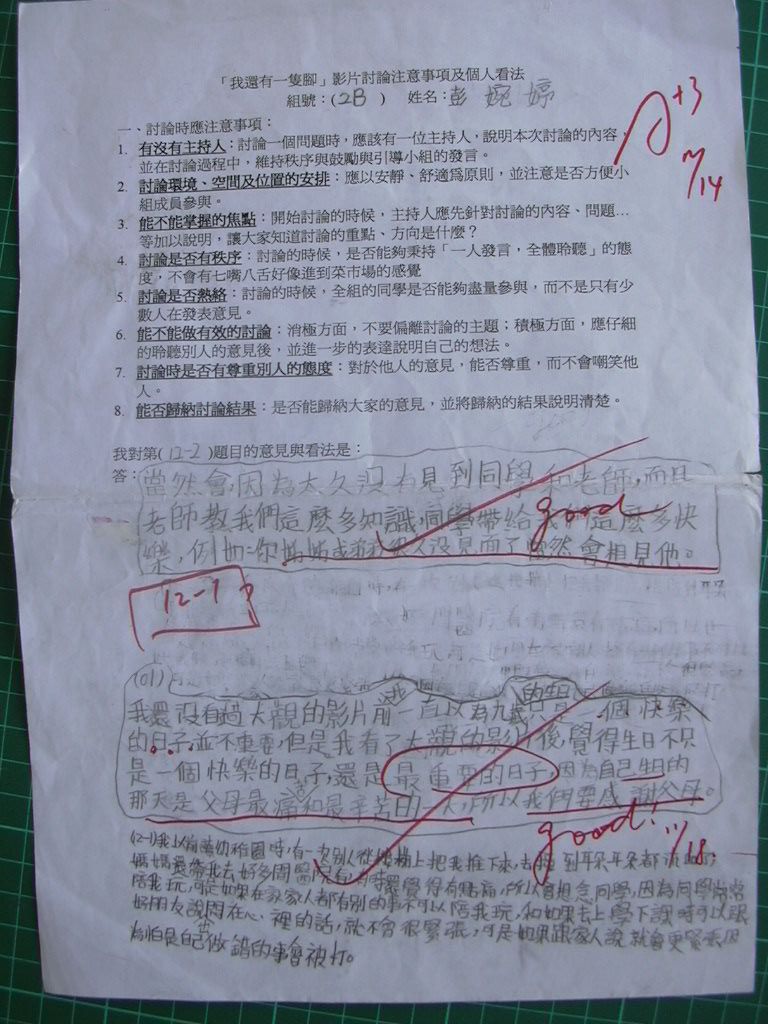 「我還有一隻腳」影片討論注意事項及個人看法
組號：(2B) 姓名：彭婉婷
A+3
11/14
一、討論時應注意事項：
1. 有沒有主持人：討論一個問題時，應該有一位主持人，說明本次討論的內容，
並在討論過程中，維持秩序與鼓勵與引導小組的發言。
2. 討論環境、空間及位置的安排：應以安靜、舒適為原則，並注意是否方便小
組成員參與。
3. 能不能掌握的焦點：開始討論的時候，主持人應先針對討論的內容、問題…
等加以說明，讓大家知道討論的重點、方向是什麼？
4. 討論是否有秩序：討論的時候，是否能夠秉持「一人發言，全體聆聽」的態
度，不會有七嘴八舌好像進到菜市場的感覺
5. 討論是否熱絡：討論的時候，全組的同學是否能夠盡量參與，而不是只有少
數人在發表意見。
6. 能不能做有效的討論：消極方面，不要偏離討論的主題；積極方面，應仔細
的聆聽別人的意見後，並進一步的表達說明自己的想法。
7. 討論時是否有尊重別人的態度：對於他人的意見，能否尊重，而不會嘲笑他
人。
8. 能否歸納討論結果：是否能歸納大家的意見，並將歸納的結果說明清楚。
我對第(12-2)題目的意見與看法是：
答：當然會，因為太久沒有見到同學和老師，而且
老師教我們這麼多知識，同學帶給我們這麼多快
樂，例如：你媽媽或爸爸很久沒見面了當然會想見他。
good
12-1?
我還沒有看過大觀的影片前一直以為九歲的生日只是一個快樂
的日子並不重要，但是我看了大觀的影片後，覺得生日不只
是一個快樂的日子，還是最重要的日子，因為自己生日的
那天是父母最痛和最辛苦的一天，所以我們要感謝父母。
good! 11/18
(12-1)我以前讀幼稚園時，有一次別人從樓梯上把我推下來，去撞到耳朵耳朵都流血了
媽媽還帶我去好多間醫院有時還覺得有點痛，所以會想念同學，因為同學常常
陪我玩，可是如果在家家人都有別的事不可以陪我玩，和如果去上學下課時可以跟
好朋友說悶在心裡的話，就不會很緊張，可是如果跟家人說就會更緊張因
為怕是自己做錯的事會被打。